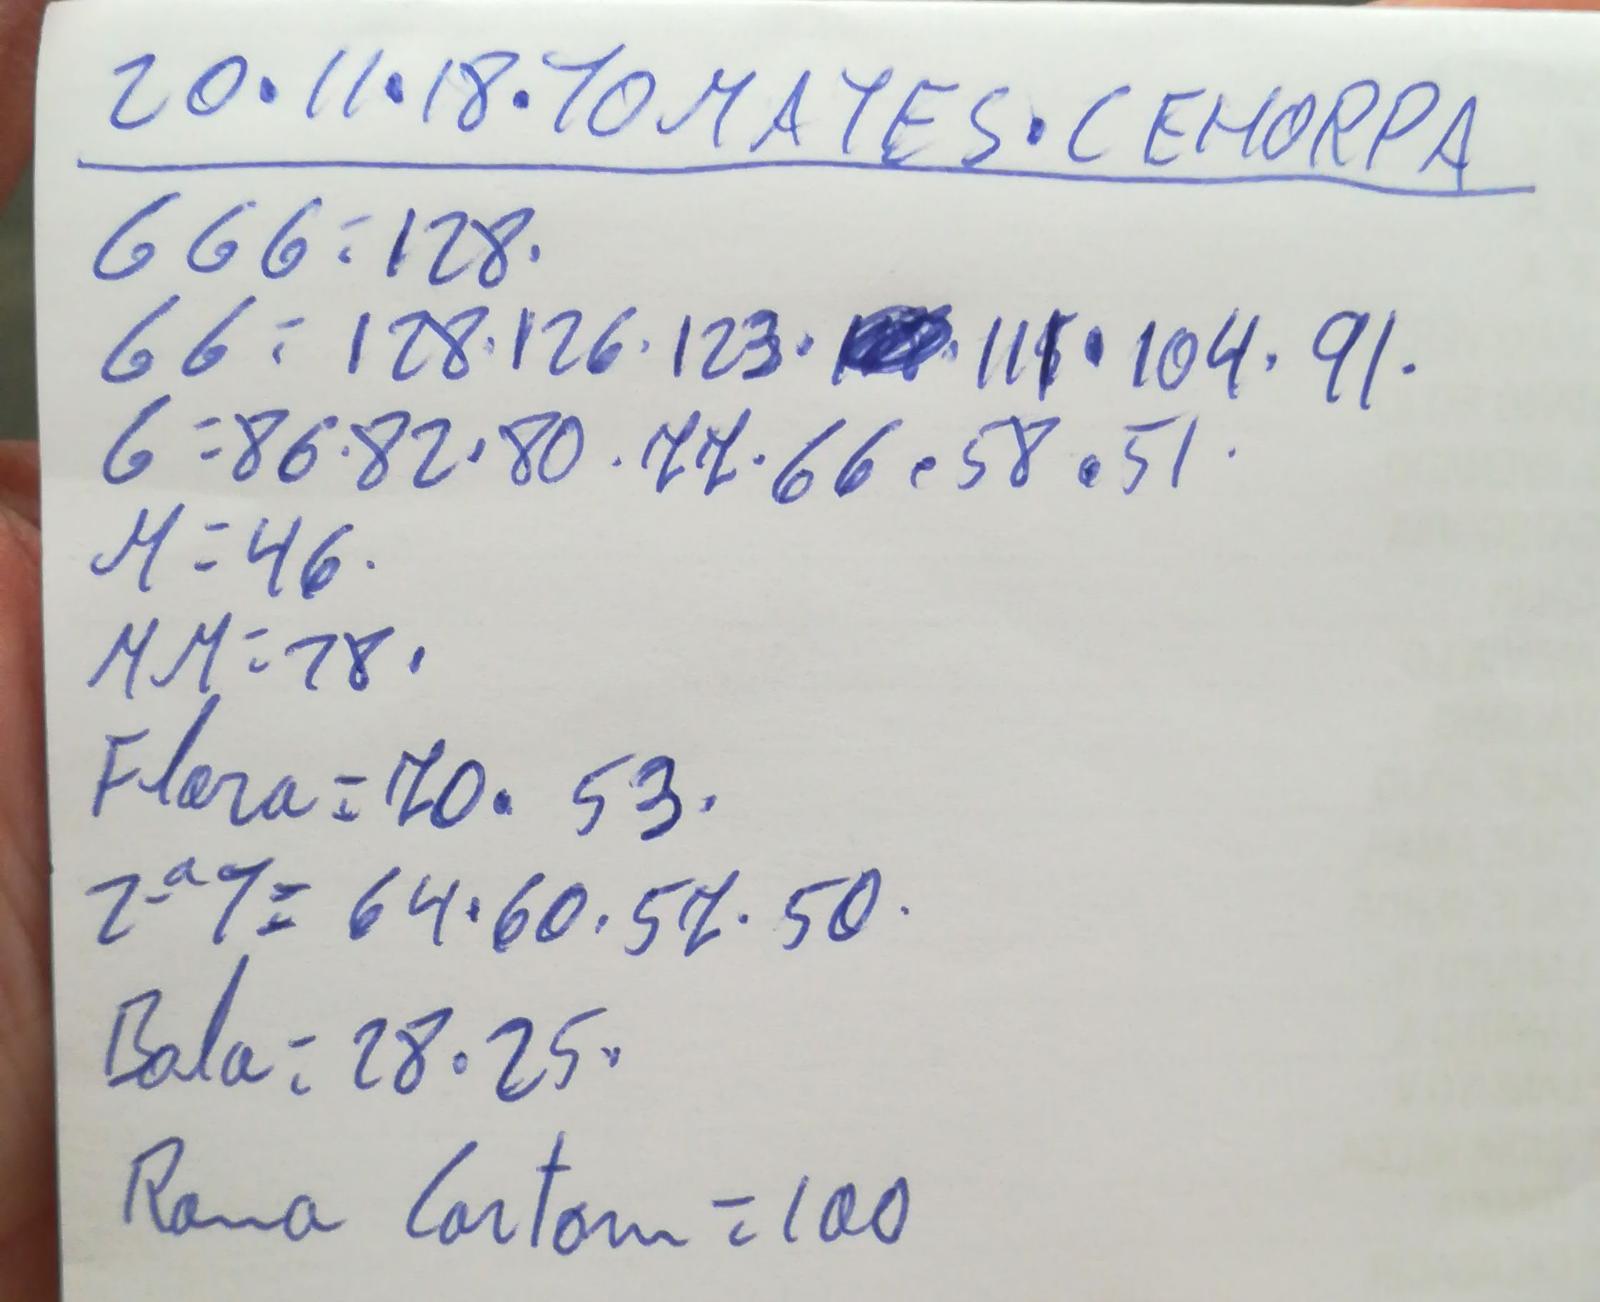 20.11.18.TOMATES.CEHORPA
GGG=128.
GG=128.126.123.111.104.91.
G=86.82.80.77.66.58.51.
M=46.
MM=78.
Flora=70. 53.
2ªT=64.60.57.50.
Bola=28.25.
Rama Cartom=100